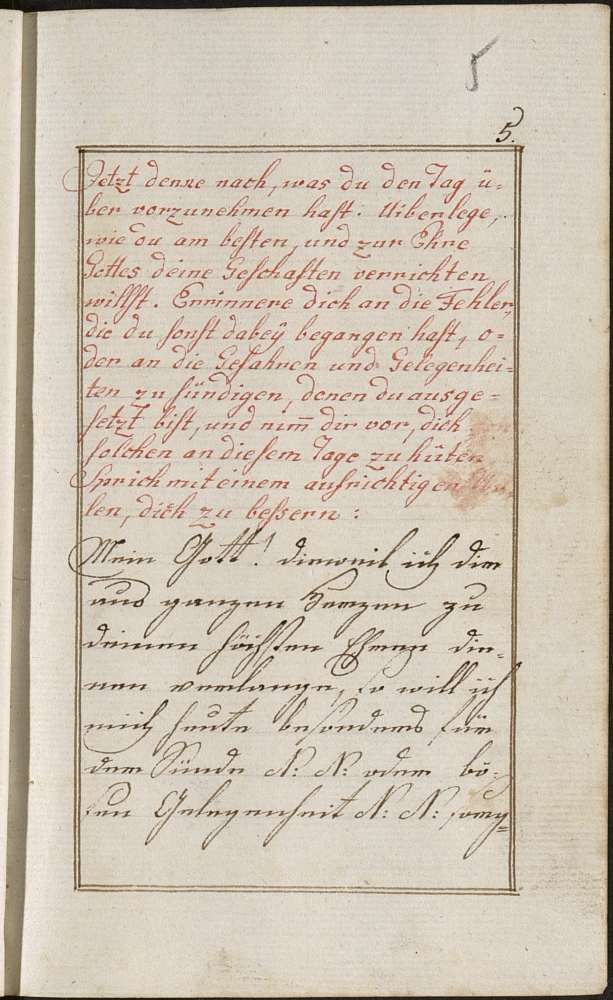 5
5.
Jetzt denke nach, was du den Tag ü-
ber vorzunehmen hast. Uiberlege,
wie du am besten, und zur Ehre
Gottes deine Geschäften verrichten
willst. Errinnere dich an die Fehler,
die du sonst dabeÿ begangen hast, o-
der an die Gefahren und Gelegenhei-
ten zu sündigen, denen du ausge-
setzt bist, und nim̅ dir vor, dich
solchen an diesem Tage zu hüten
Sprich mit einem aufrichtigen
len, dich zu beßern:
Mein Gott! dieweil ich dir
aus ganzen Herzen zu
deinen höchsten Ehren die-
nen verlange, so will ich
mich heute besonders für
der Sünde N: N: oder bö-
sen Gelegenheit N: N: sorg-